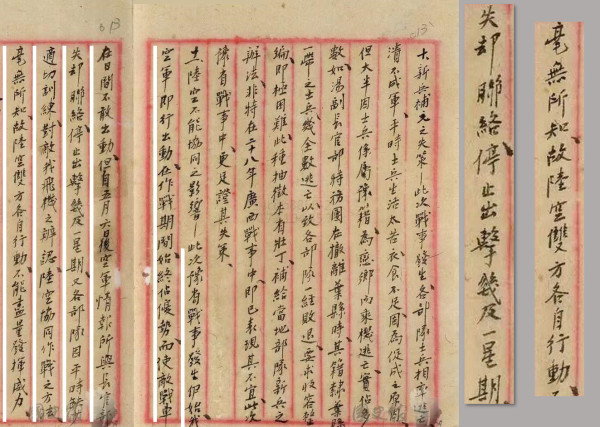 十、新兵補充之失策—此次戰事發生各部隊士兵相率逃亡
潰不成軍平時士兵生活太苦衣食不足固為促成之原因
但大半因士兵係屬豫籍為思鄉而乘機逃亡實佔多
數如湯副長官部特務團在撤離葉縣時其籍隸葉縣
一帶之士兵幾全數逃亡以致各部隊一經敗退要求收容整
編即極困難此種抽徵本省壯丁補給當地部隊新兵之
辦法非特在二十八年廣西戰事中即已表現其不宜此次
豫省戰事中更足證其失策
土、陸空不能協同之影響—此次豫省戰事發生伊始我
空軍即行出動在作戰期間始終佔優勢而使敵戰車
在日間不敢出動但自五月六日後空軍情報所與長官部
失却聯絡停止出擊幾及一星期又各部隊因平時缺乏
適切訓練對敵我飛機之辨認陸空協同作戰之方法
毫無所知故陸空雙方各自行動不能盡量發揮威力
失却聯絡停止出擊幾及一星期
毫無所知故陸空雙方各自行動